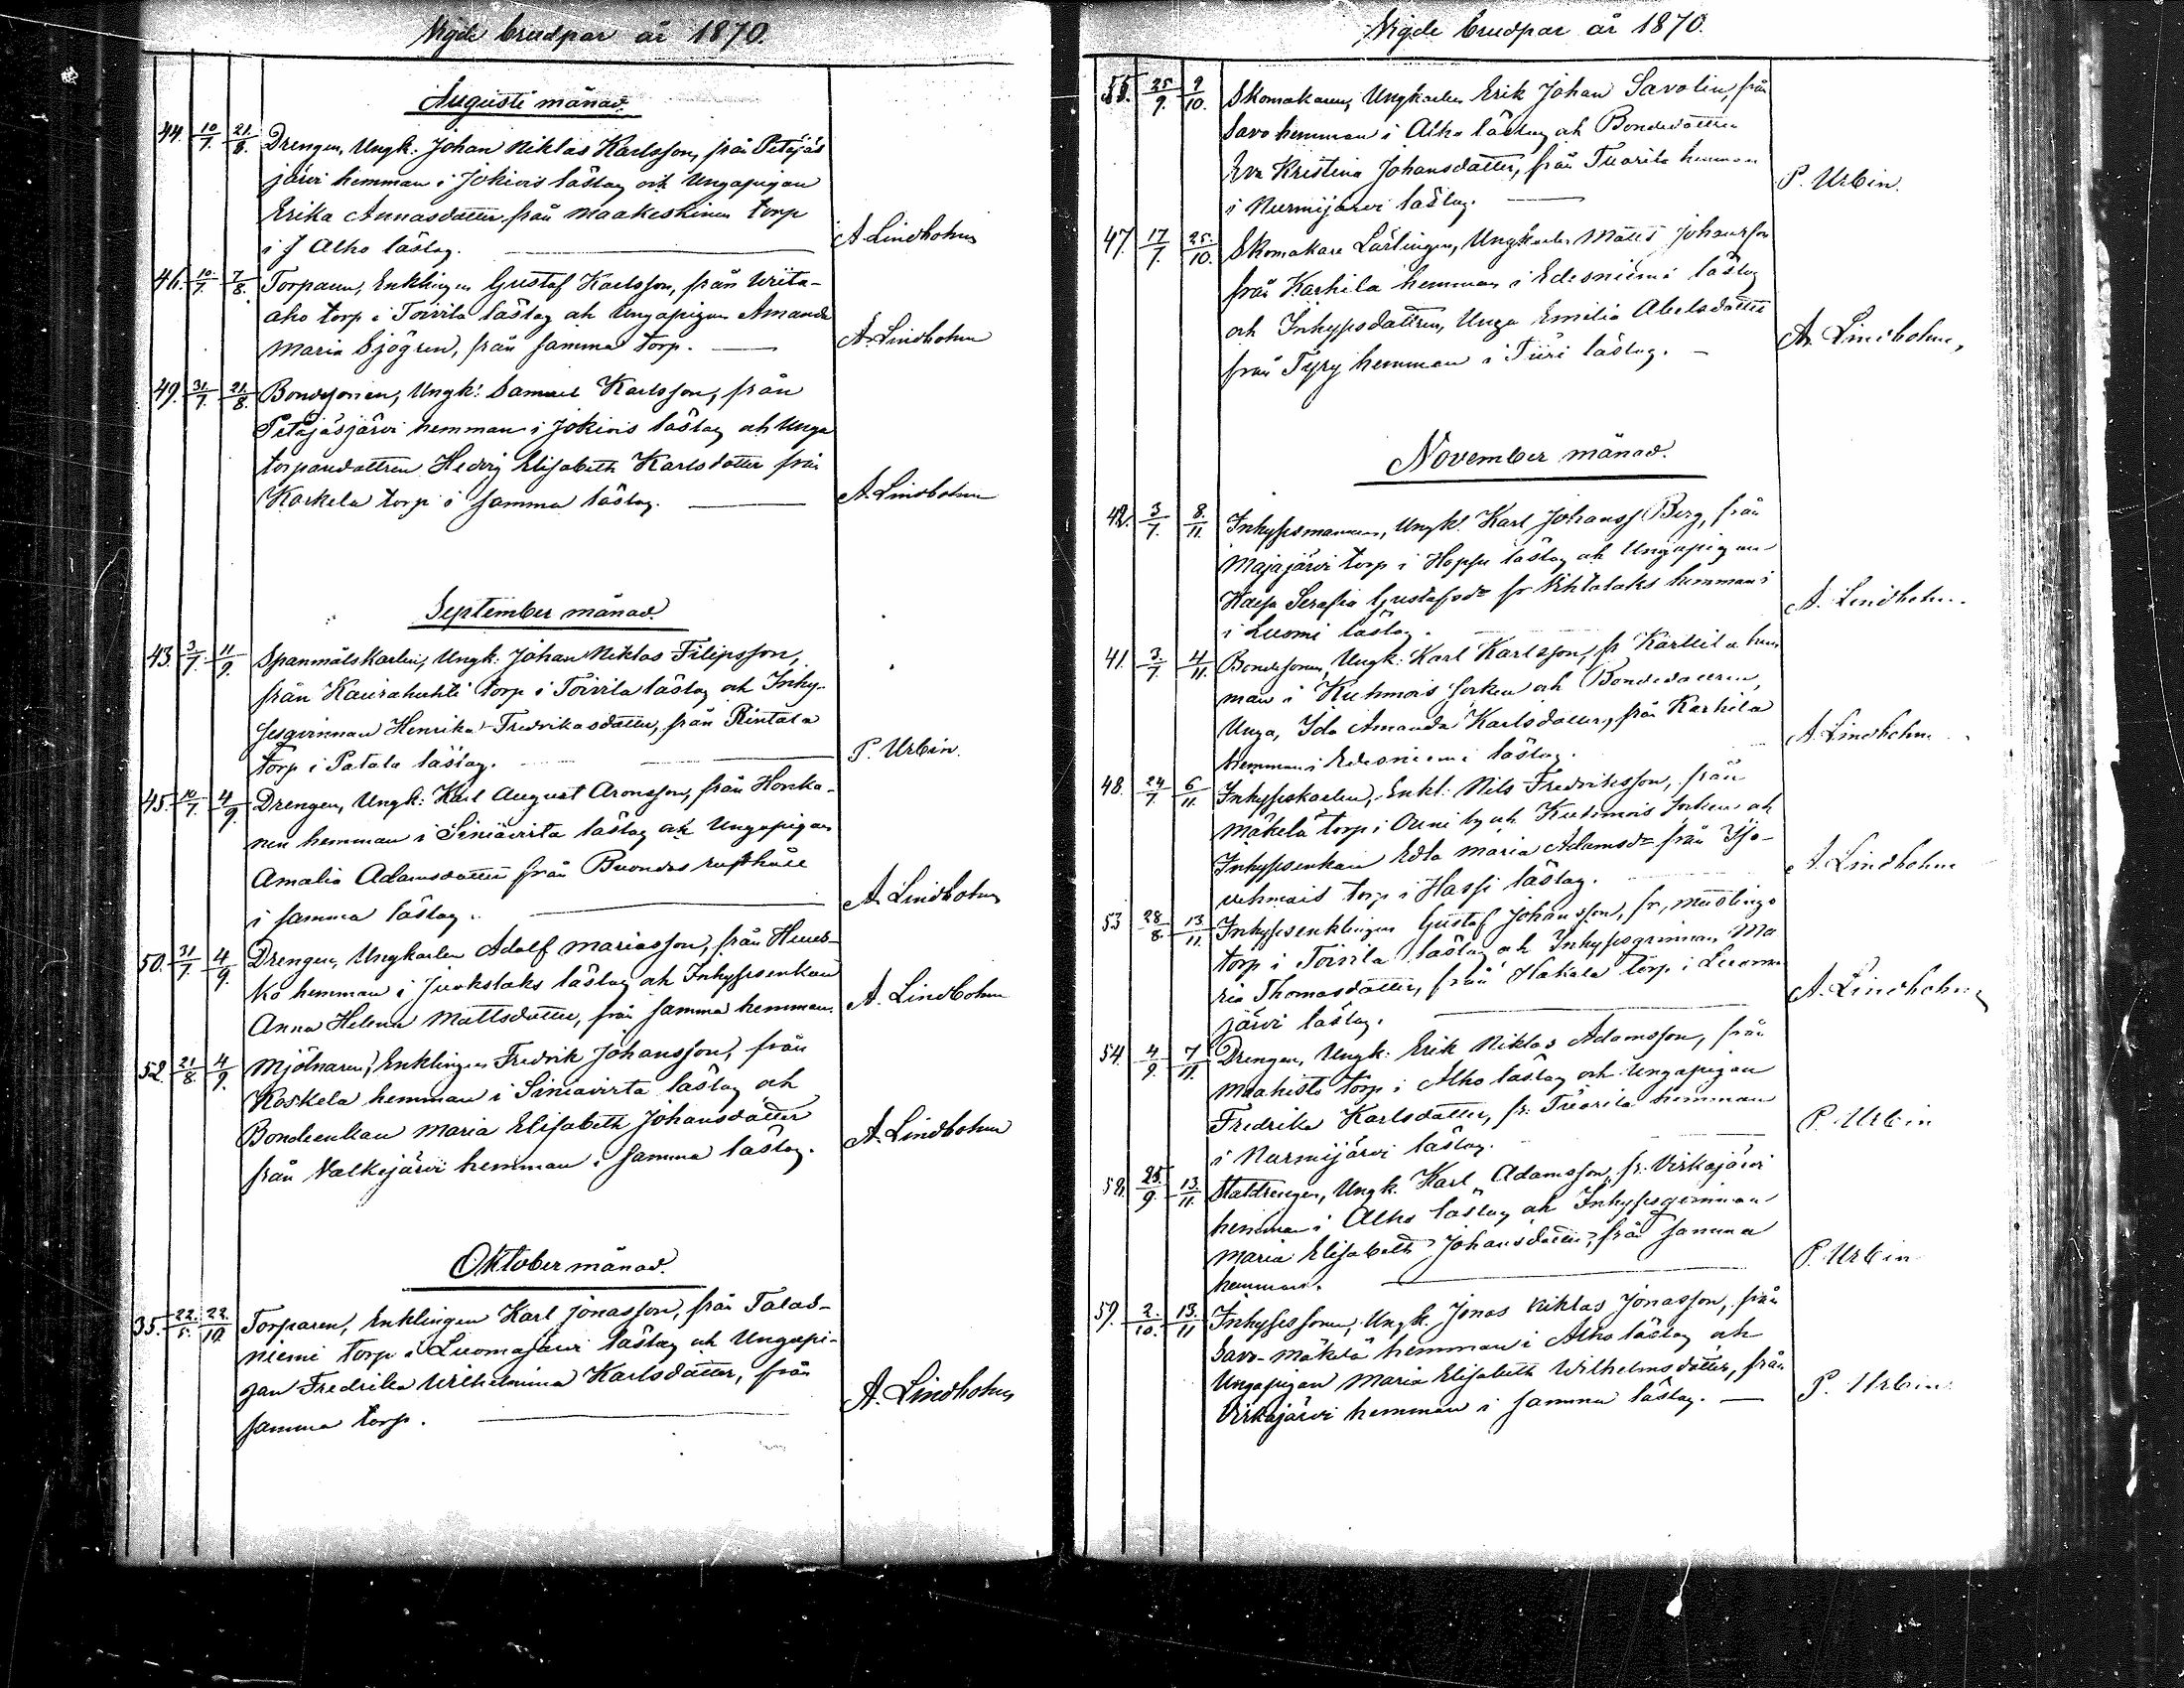 Vigde brudpar år 1870.
Augusti månad.
44. 10/7. 21/8. Drengen, Ungk. Johan Niklas Karlsson, från Petäjäs
järvi hemman i Jokivis låstag och Ungapigan
Erika Annasdatter från Maakeskinen torp
i J Alho låstag. A. Lindholm
46. 10/7. 7/8. Torparen, Enklingen Gustaf Karlsson, från
aho torp i Toivila låstag och Ungapigan Amanda
Maria Sjögren, från samma torp. A. Lindholm
49. 31/7. 21/8. Bondesonen, Ungk: Samuel Karlsson, från
Petäjäsjärvi hemman i Jokivis låstag och Unga
torparedattren Hedvig Elisabeth Karlsdatter från
Karkela torp i samma låstag. A. Lindholm
September månad.
43. 3/7. 11/9. Spanmålskarlen, Ungk: Johan Niklas Filipsson,
från Kaurahuhti torp i Toivila låstag och Inhy-
sesqvinnan Henrika Fredrikasdatter, från Rintala
torp i Patala låstag. P. Urbin.
45. 10/7. 4/9. Drengen, Ungk: Karl August Aronsson, från Honka-
nen hemman i Siniävirta låstag och Ungapigan
Amalia Adamsdatter från rusthåll
i samma låstag. A. Lindholm
50. 31/7. 4/9. Drengen, Ungkarlen Adolf Mariasson, från
ko hemman i Juokslaks låstag och Inhysesenkan
Anna Helena Mattsdatter, från samma hemman. A. Lindholm
52. 21/8. 4/9. Mjölnaren, Enklingen Fredrik Johansson, från
Koskela hemman i Siniävirta låstag och
Bondeenkan Maria Elisabeth Johansdatter
från Valkejärvi hemman i samma låstag. A. Lindholm
Oktober månad.
35. 22./5. 22./10. Torparen, Enklingen Karl Jonasson, från Talas-
niemi torp i Luomajärvi låstag och Ungapi-
gan Fredrika Wilhelmina Karlsdatter, från
samma torp. A. Lindholm
Vigde brudpar år 1870.
55. 25/9. 9/10. Skomakaren, Ungkarlen Erik Johan Savolin, från
Savo hemman i Alho låstag och Bondedattren
Eva Kristina Johansdatter, från Tuorila hemman
i Nurmijärvi låstag. P. Urbin.
47. 17/7. 25./10. Skomakare Lärlingen, Ungkarlen Matts Johansson
från Karhila hemman i Edesniemi låstag
och Inhysesdattren, Unga Emilia Abelsdatter
från Tyry hemman i Tiiri låstag. A. Lindholm,
November månad.
42. 3/7. 8./11. Inhysesmannen, Ungk. Karl Johanss Berg, från
Majajärvi torp i Hopsu låstag och Ungapigan
Kaisa Serafia Gustafsdr fr hemman i
i Luomi låstag. A. Lindholm.
41. 3/7. 4/11. Bondesonen, Ungk: Karl Karlsson, fr hem
man i Kuhmois socken och Bondedattren,
Unga, Ida Amanda Karlsdatter, från Karhila
hemman i Edesniemi låstag. A. Lindholm
48. 24/7. 6/11. Inhyseskarlen, Enkl: Nils Fredriksson, från
Mäkelä torp i by och Kuhmois socken och
Inhysesenkan Edla Maria Adamsdr från
torp i Hassi låstag. A. Lindholm
53 28/8. 13/11. Inhysesenklingen Gustaf Johansson, fr,
torp i Toivila låstag och Inhysesqvinnan Ma
ria Thomasdatter, från Hakala torp i Luoma
järvi låstag. A. Lindholm
54. 4/9. 7/11. Drengen, Ungk: Erik Niklas Adamsson, från
Maahisto torp i Alho låstag och Ungapigan
Fredrika Karlsdatter, fr: Tuorila hemman
i Nurmijärvi låstag. P. Urbin
58. 25./9. 13/11. Statdrengen, Ungk. Karl Adamsson, fr: Virkajärvi
hemman i Alho låstag och Inhysesqvinnan
Maria Elisabeth Johansdatter, från samma
hemman. P. Urbin
59. 2./10. 13./11 Inhysessonen, Ungk. Jonas Niklas Jonasson, från
Savo-Mäkelä hemman i Alho låstag och
Ungapigan Maria Elisabeth Wilhelmsdatter, från
Virkajärvi hemman i samma låstag. P. Urbin